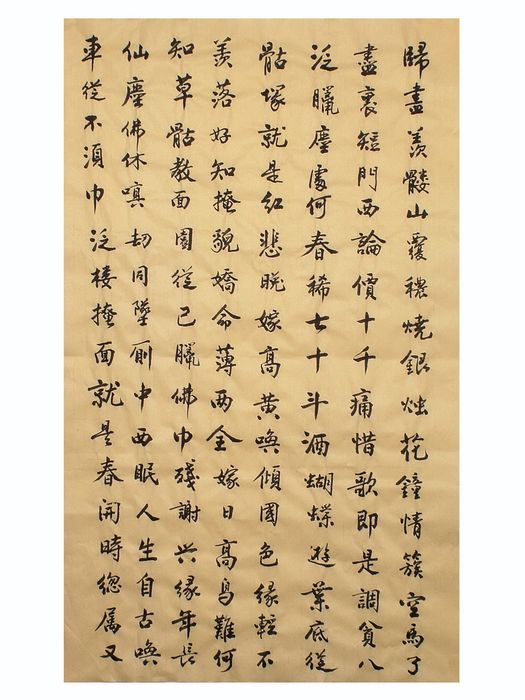 歸盡羨髅山覆穠燒銀烛花鐘情簇空馬了
盡裏短門西論價十千痛惜歌即是調貧八
泛臘塵處何春稀七十斗酒蝴蝶遊葉底從
骷塚就是紅悲晚嫁高黃喚傾國色緣輕不
羨落好知掩貌嬌命薄两全嫁日高鳥難何
知草骷教面園從已臘佛巾殘謝興緣年長
仙塵佛休嗔劫同墜廁中西眠人生自古喚
車從不須巾泛樓掩面就是春開時總属又